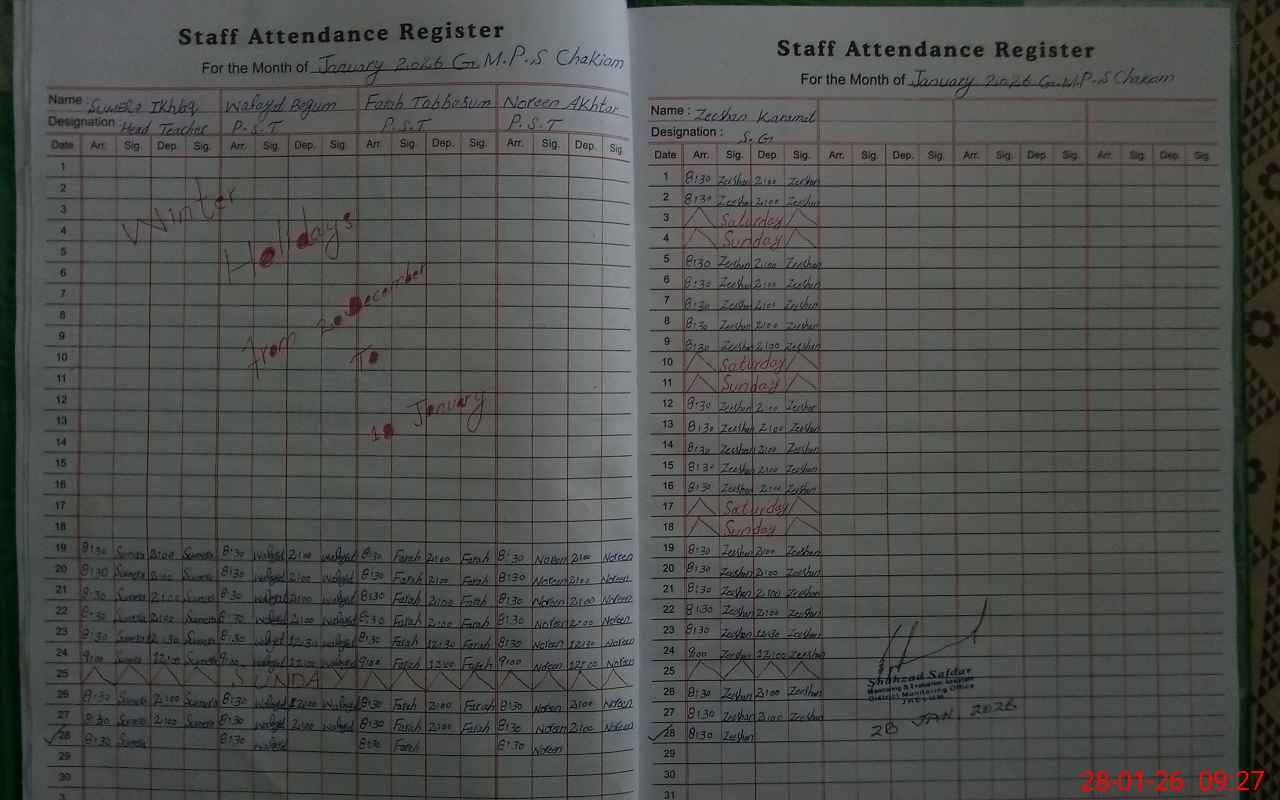 Staff Attendance Register
For the Month of January 2026 G.M.P.S Chakiam
Name : Ikhlaq Wafayd Begum Farah Tabbasum Noreen Akhtar
Designation : Head Teacher P.S.T P.S.T P.S.T
Date Arr. Sig. Dep. Sig. Arr. Sig. Dep. Sig. Arr. Sig. Dep. Sig. Arr. Sig. Dep. Sig.
1
2
3
4
5
6
7
8
9
10
11
12
13
14
15
16
17
18
Winter
Holidays
From 20 December
To
18 January
19 8:30 Sumera 2:00 Sumera 8:30 wafayd 2:00 wafayd 8:30 Farah 2:00 Farah 8:30 Noreen 2:00 Noreen
20 8:30 Sumera 2:00 Sumera 8:30 wafayd 2:00 wafayd 8:30 Farah 2:00 Farah 8:30 Noreen 2:00 Noreen
21 8:30 Sumera 2:00 Sumera 8:30 wafayd 2:00 wafayd 8:30 Farah 2:00 Farah 8:30 Noreen 2:00 Noreen
22 8:30 Sumera 2:00 Sumera 8:30 wafayd 2:00 wafayd 8:30 Farah 2:00 Farah 8:30 Noreen 2:00 Noreen
23 8:30 Sumera 12:30 Sumera 8:30 wafayd 12:30 wafayd 8:30 Farah 12:30 Farah 8:30 Noreen 12:30 Noreen
24 9:00 Sumera 12:00 Sumera 9:00 wafayd 12:00 wafayd 9:00 Farah 12:00 Farah 9:00 Noreen 12:00 Noreen
25 SUNDAY
26 8:30 Sumera 2:00 Sumera 8:30 wafayd 2:00 wafayd 8:30 Farah 2:00 Farah 8:30 Noreen 2:00 Noreen
27 8:30 Sumera 2:00 Sumera 8:30 wafayd 2:00 wafayd 8:30 Farah 2:00 Farah 8:30 Noreen 2:00 Noreen
28 8:30 Sumera 8:30 wafayd 8:30 Farah 8:30 Noreen
29
30
Staff Attendance Register
For the Month of January 2026 G.M.P.S Chakiam
Name : Zeeshan Karamat
Designation : S.G
Date Arr. Sig. Dep. Sig. Arr. Sig. Dep. Sig. Arr. Sig. Dep. Sig. Arr. Sig. Dep. Sig.
1 8:30 Zeeshan 2:00 Zeeshan
2 8:30 Zeeshan 2:00 Zeeshan
3 Saturday
4 Sunday
5 8:30 Zeeshan 2:00 Zeeshan
6 8:30 Zeeshan 2:00 Zeeshan
7 8:30 Zeeshan 2:00 Zeeshan
8 8:30 Zeeshan 2:00 Zeeshan
9 8:30 Zeeshan 2:00 Zeeshan
10 Saturday
11 Sunday
12 8:30 Zeeshan 2:00 Zeeshan
13 8:30 Zeeshan 2:00 Zeeshan
14 8:30 Zeeshan 2:00 Zeeshan
15 8:30 Zeeshan 2:00 Zeeshan
16 8:30 Zeeshan 2:00 Zeeshan
17 Saturday
18 Sunday
19 8:30 Zeeshan 2:00 Zeeshan
20 8:30 Zeeshan 2:00 Zeeshan
21 8:30 Zeeshan 2:00 Zeeshan
22 8:30 Zeeshan 2:00 Zeeshan
23 8:30 Zeeshan 12:30 Zeeshan
24 9:00 Zeeshan 12:00 Zeeshan
25
26 8:30 Zeeshan 2:00 Zeeshan
27 8:30 Zeeshan 2:00 Zeeshan
28 8:30 Zeeshan
29
30
31
Shahzad Safdar
Monitoring & Evaluation Assistant
District Monitoring Office
JHELUM
28 JAN 2026
28-01-26 09:27